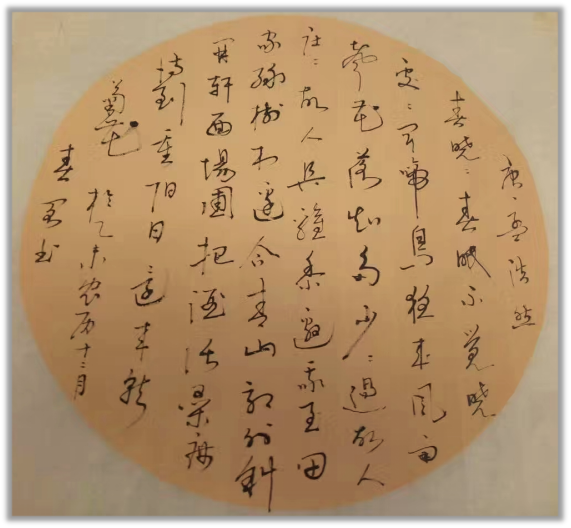 唐孟浩然
春晓：春眠不觉晓
处：闻啼鸟夜来风雨
声花落知多少：过故人
庄：故人具鸡黍邀我至田
家绿树村边合青山郭外斜
开轩面场圃把酒话桑麻
待到重阳日还来就
菊花
於乙未农历十二月
春书